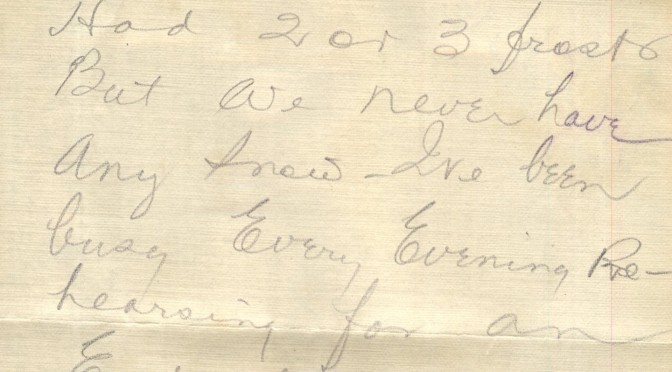 Had 2 or 3 frosts
But we never have
Any snow - I've been
busy Every Evening Re-
hearsing for an